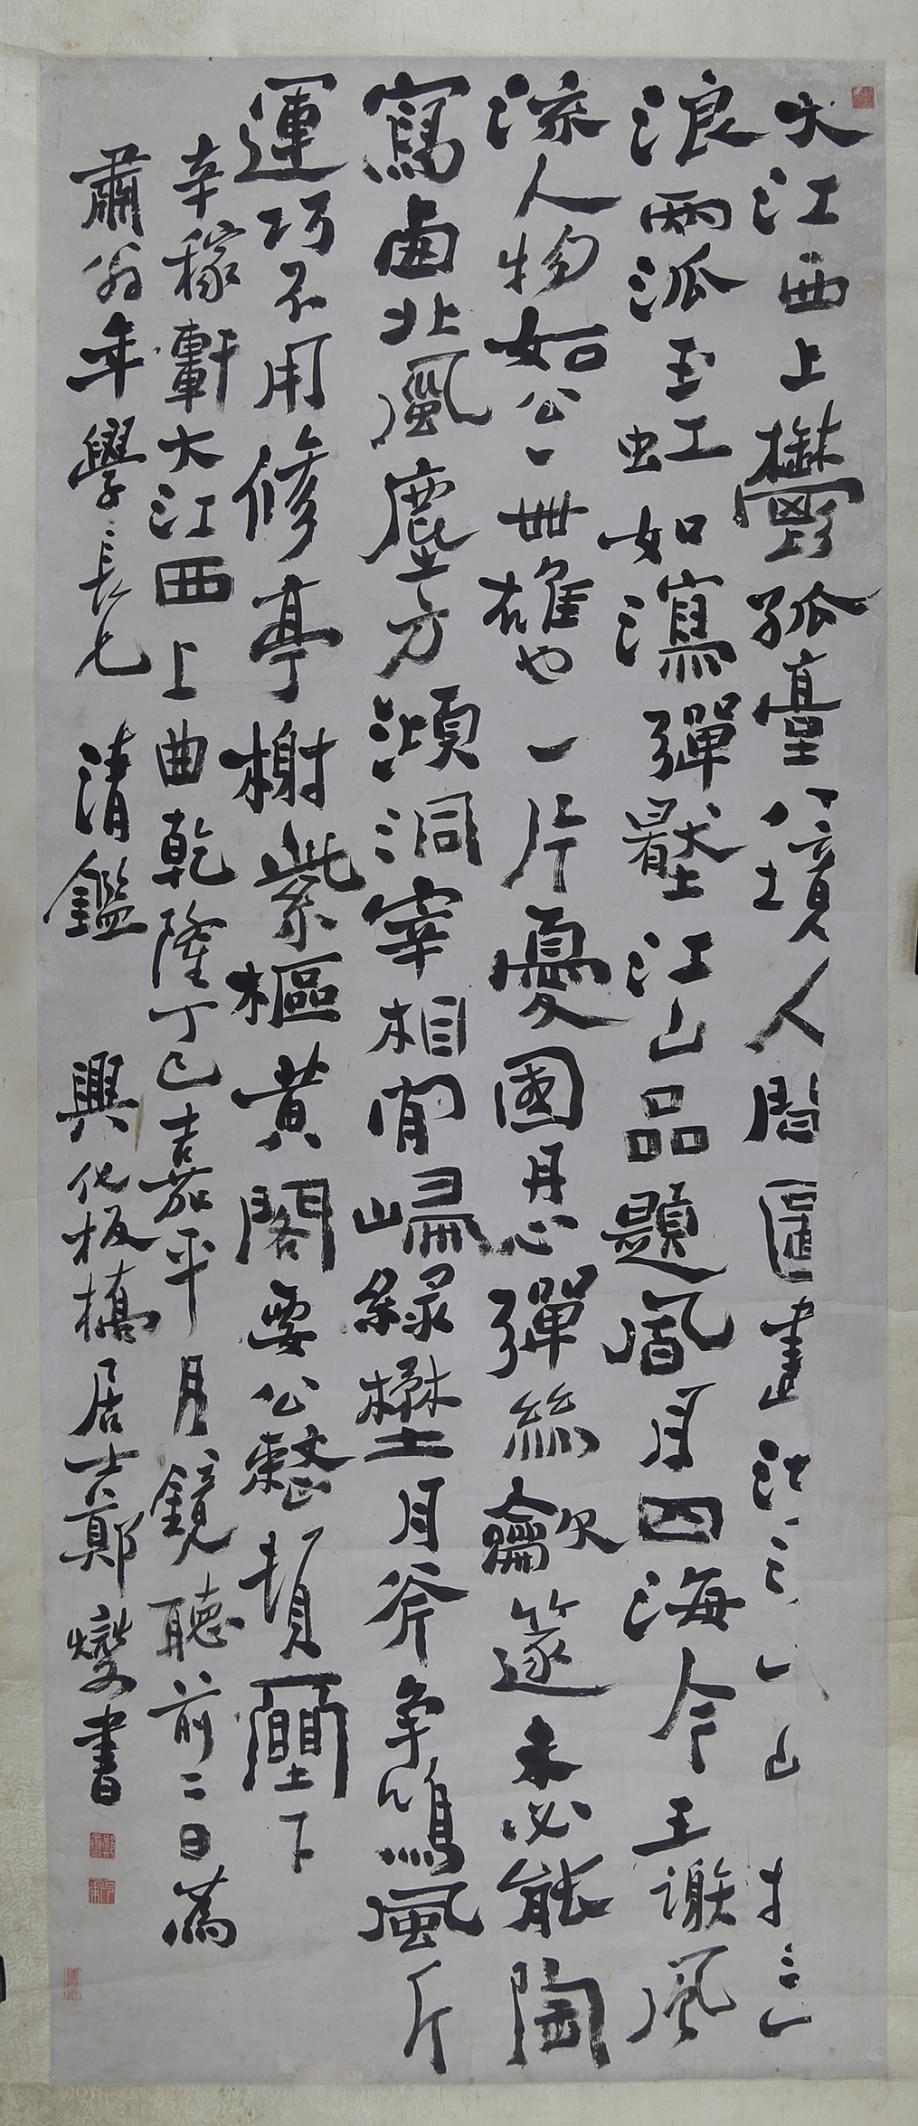 大江西上鬱孤臺八境人間圖畫地 山
浪兩派玉虹如瀉彈壓江山品題風月四海今王謝風
流人物如公一世雄也一片憂國丹心彈絲吹篴未必能陶
寫鹵北風塵方澒洞宰相閒歸綠野月斧爭鳴風斤
運巧不用修亭榭紫樞黃閣要公整頓廛下
辛稼軒大江西上曲乾隆丁巳嘉平月鏡聽前二日為
肅翁年學長兄 清鑑 興化板橋居士鄭燮書